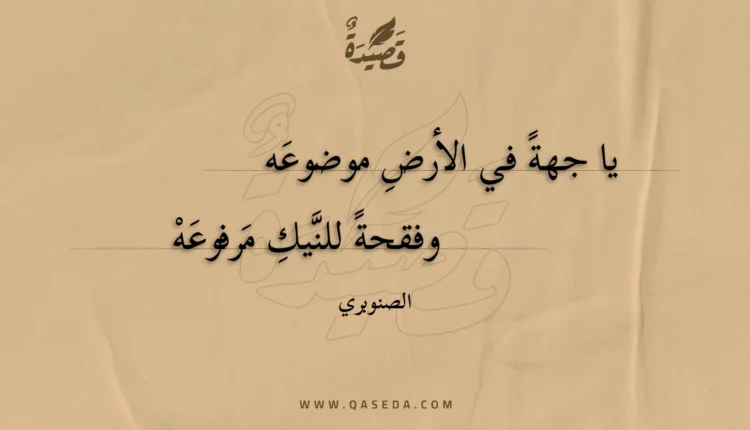 قَصِيْدَةٌ
يا جهةً في الأرضِ موضوعَه
وفقحةً للنَّيكِ مَرفوعَهْ
الصنوبري
WWW.QASEDA.COM